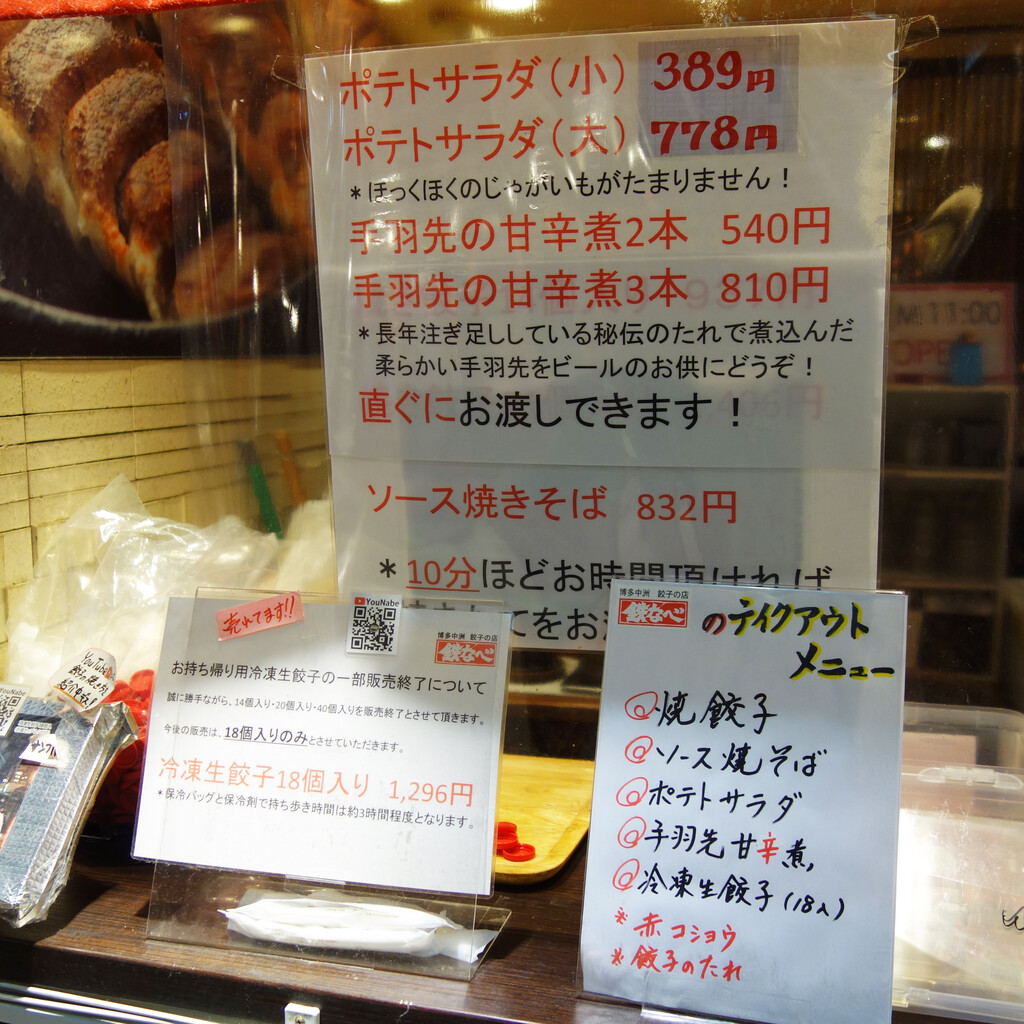 ポテトサラダ（小） 389円
ポテトサラダ（大） 778円
＊ほっくほくのじゃがいもがたまりません！
手羽先の甘辛煮2本 540円
手羽先の甘辛煮3本 810円
＊長年注ぎ足ししている秘伝のたれで煮込んだ
柔らかい手羽先をビールのお供にどうぞ！
直ぐにお渡しできます！
ソース焼きそば 832円
＊10分ほどお時間頂ければ
てをお
11:00
売れてます!!
YouNabe
博多中洲 餃子の店
鉄なべ
お持ち帰り用冷凍生餃子の一部販売終了について
誠に勝手ながら、14個入り・20個入り・40個入りを販売終了とさせて頂きます。
今後の販売は、18個入りのみとさせていただきます。
冷凍生餃子18個入り 1,296円
＊保冷バッグと保冷剤で持ち歩き時間は約3時間程度となります。
YouNabe
YouTubeで
サンプル
博多中洲 餃子の店
鉄なべ のテイクアウト
メニュー
◎焼餃子
◎ソース焼そば
◎ポテトサラダ
◎手羽先甘辛煮
◎冷凍生餃子(18入)
※赤コショウ
※餃子のたれ